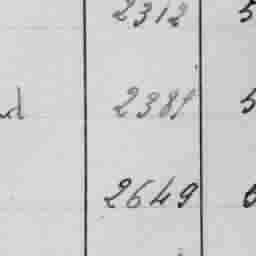 2312 5
d 2381 5
2649 6